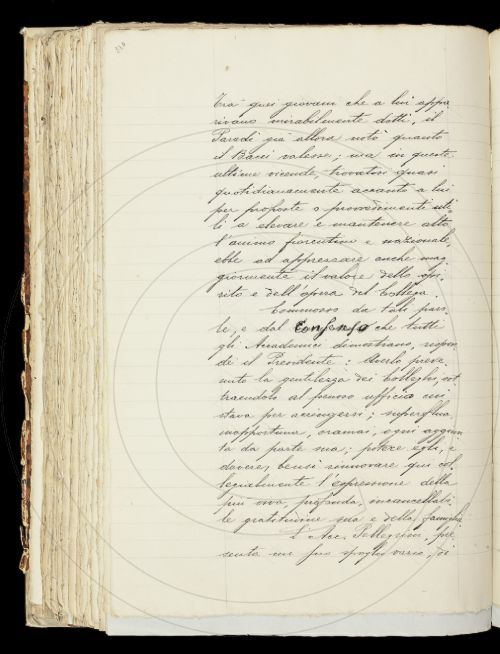 Tra quei giovani che a lui appa
rivano mirabilmente dotti, il
Parodi già allora notò quanto
il Bacci valesse; ma in queste
ultime vicende, trovatosi quasi
quotidianamente accanto a lui
per proposte o provvedimenti uti-
li a elevare e mantenere alto
l'animo fiorentino e nazionale,
ebbe ad apprezzare anche mag
giormente il valore dello spi-
rito e dell'opera del Collega.
Commosso da tali paro-
le, e dal Consenso che tutti
gli Accademici dimostrano, rispon-
de il Presidente. Averlo preve
nuto la gentilezza dei Colleghi, sot
traendolo al penoso ufficio cui
stava per accingersi; superflua,
inopportuna, oramai, ogni aggiun
ta da parte sua; potere egli, e
dovere, bensì rinnovare qui col
legialmente l'espressione della
più viva, profonda, incancellabi-
le gratitudine sua e della famiglia.
L'Acc. Pellegrini, pre
senta un suo spoglio vario, di